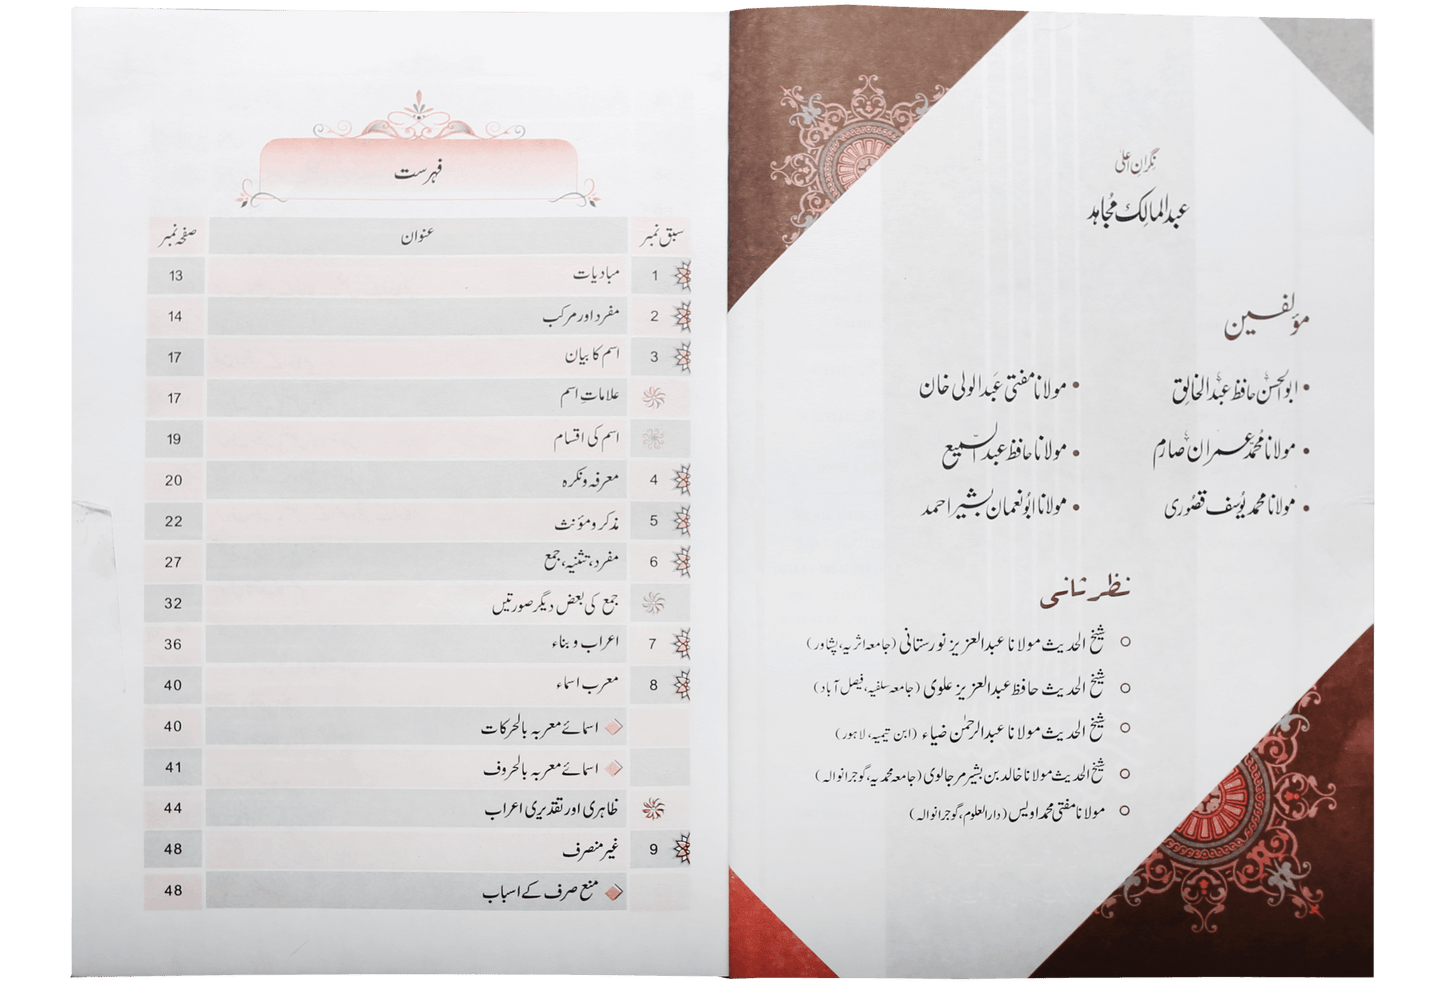 نگرانِ اعلیٰ
عبدالمالک مجاہد
مؤلفین
• ابوالحسن حافظ عبدالخالق • مولانا مفتی عبدالولی خان
• مولانا محمد عمران صارم • مولانا حافظ عبدالسمیع
• مولانا محمد یوسف قصوری • مولانا ابونعمان بشیر احمد
نظرِ ثانی
شیخ الحدیث مولانا عبدالعزیز نورستانی (جامعہ اثریہ، پشاور)
شیخ الحدیث حافظ عبدالعزیز علوی (جامعہ سلفیہ، فیصل آباد)
شیخ الحدیث مولانا عبدالرحمٰن ضیاء (ابن تیمیہ، لاہور)
شیخ الحدیث مولانا خالد بن بشیر مرجالوی (جامعہ محمدیہ، گوجرانوالہ)
مولانا مفتی محمد اویس (دارالعلوم، گوجرانوالہ)
فہرست
سبق نمبر عنوان صفحہ نمبر
1 مبادیات 13
2 مفرد اور مرکب 14
3 اسم کا بیان 17
علاماتِ اسم 17
اسم کی اقسام 19
4 معرفہ و نکرہ 20
5 مذکر و مؤنث 22
6 مفرد، تثنیہ، جمع 27
جمع کی بعض دیگر صورتیں 32
7 اعراب و بناء 36
8 معرب اسماء 40
اسمائے معربہ بالحرکات 40
اسمائے معربہ بالحروف 41
ظاہری اور تقدیری اعراب 44
9 غیر منصرف 48
منع صرف کے اسباب 48